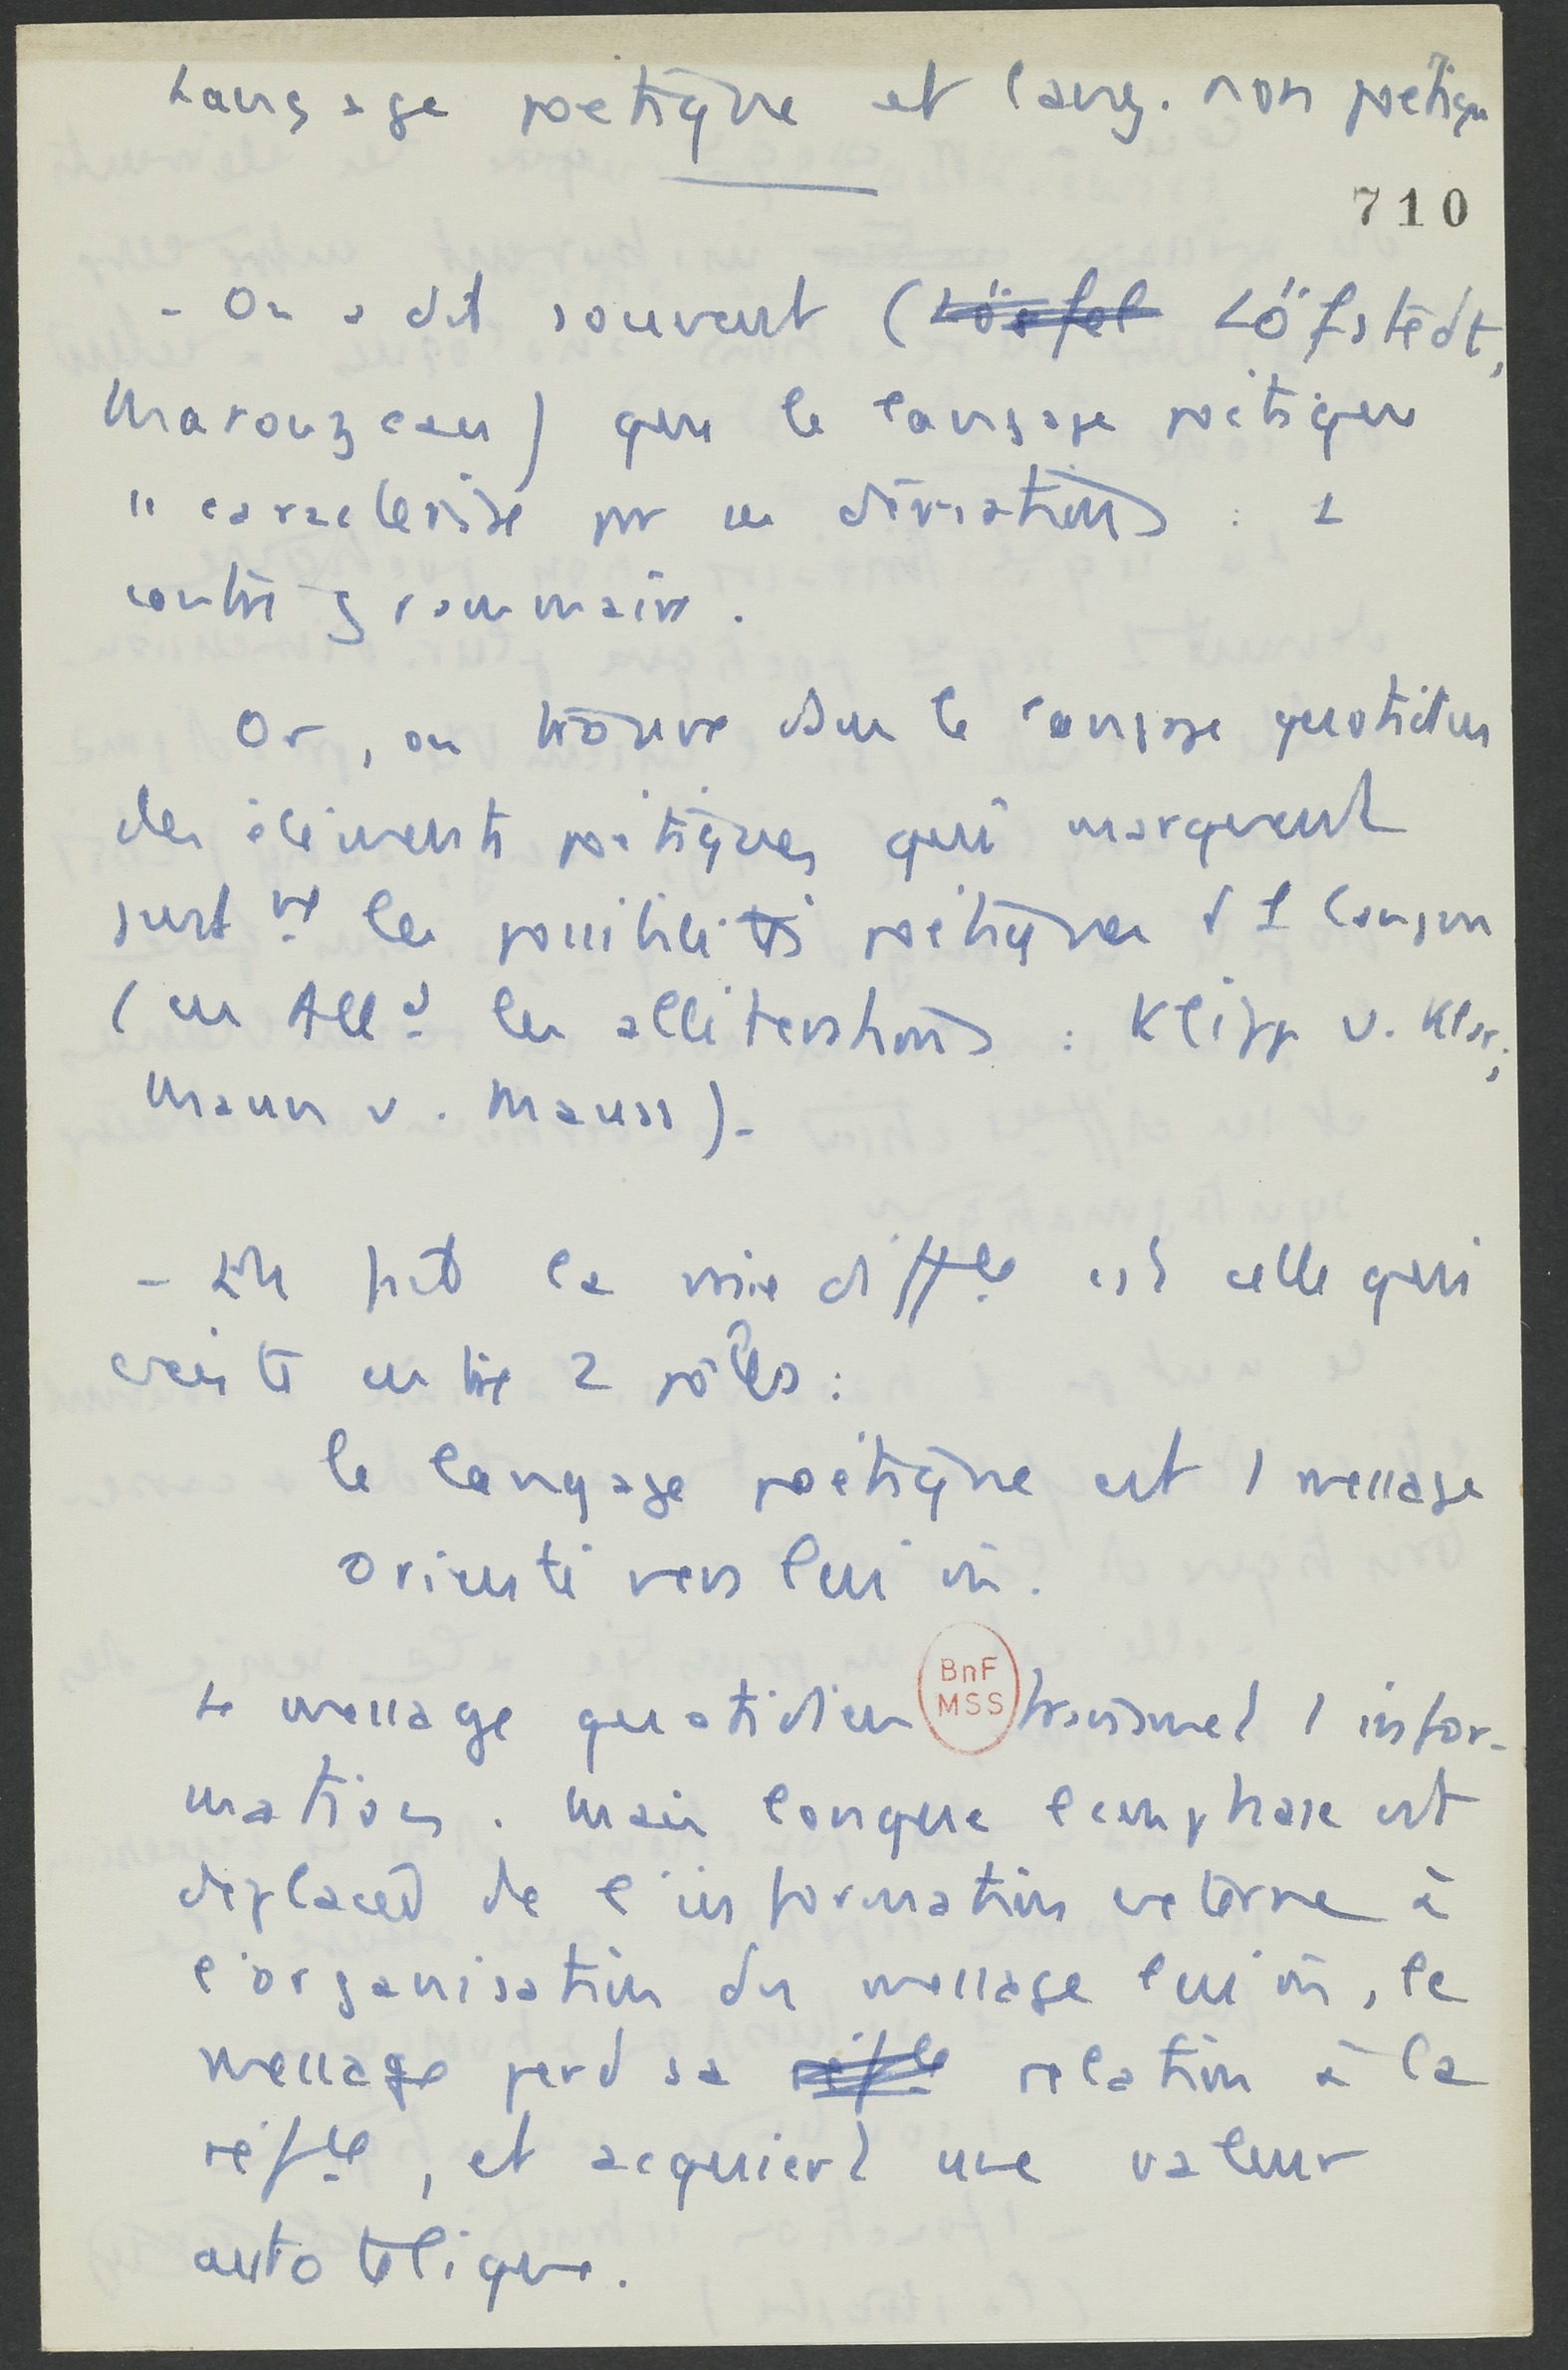 Langage poétique et lang. non poétiqu
710
- On a dit souvent (Löfstedt,
Marouzeau) que le langage poétique
" caractérisé par un déviations : 1
contre grammaire.
Or, on trouve dans le langage quotidien
des éléments poétiques qui marquent
suvt les possibilités poétiques d 1 langue
(en Alld les allitérations : Klipp u. Klar;
Mann u. Mauss).
- En fait la vraie difffce est celle qui
existe entre 2 pôles :
le langage poétique est 1 message
orienté vers lui m̂.
Le message quotidien
BnF
MSS
transmet 1 infor-
mation. Mais lorsque l'emphase est
déplacée de l'information externe à
l'organisation du message lui m̂, le
message perd sa relation à la
réfce, et acquiert une valeur
auto télique.